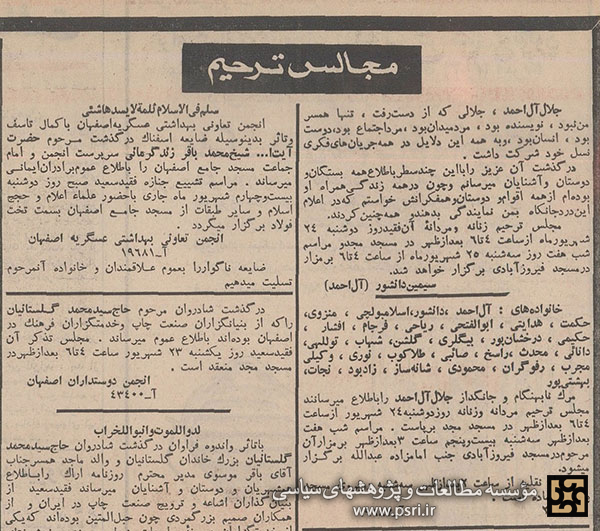 مجالس ترحیم
جلال آل احمد ، جلالی که از دست رفت ، تنها همسر
من نبود ، نویسنده بود ، مردمیدان بود ، مرداجتماع بود، دوست
بود ، انسان بود، و به همه این دلایل در همه جریان‌های فکری
نسل خود شرکت داشت .
در گذشت آن عزیز را با این چند سطر باطلاع همه بستگان و
دوستان و آشنایان میرسانم و چون در همه زندگی همراه او
بوده‌ام از همه اقوام و دوستان و همفکرانش خواستم که در اعلام
این درد جانکاه بمن نمایندگی بدهند و همه چنین کردند.
مجلس ترحیم زنانه و مردانهٔ آن فقید روز دوشنبه ۲۴
شهریورماه از ساعت ۴ تا ۶ بعدازظهر در مسجد مجد و مراسم
شب هفت روز سه‌شنبه ۲۵ شهریورماه از ساعت ۴ تا ۶ بر مزار
در مسجد فیروزآبادی برگزار خواهد شد.
سیمین دانشور (آل احمد)
خانواده‌های : آل احمد ، دانشور، اسلامبولچی ، منزوی،
حکمت ، هدایتی ، ابوالفتحی ، ریاحی ، فرجام ، افشار ،
حکیمی ، درخشان‌پور ، پیگلری ، گلشن، شهباب ، توللهی،
دانائی ، محدث ، راسخ ، صائبی ، طلاکوب ، نوری ، وکیلی
مجرب ، رفوگران ، محمودی ، شانه‌ساز ، زادبود ، نجات،
بهشتی‌پور
مرگ نابهنگام و جانگداز جلال آل احمد را باطلاع میرسانند
مجلس ترحیم مردانه و زنانه روز دوشنبه ۲۴ شهریور از ساعت
۴ تا ۶ بعدازظهر در مسجد مجد برپاست . مراسم شب هفت
بعدازظهر سه‌شنبه بیست‌وپنجم ساعت ۳ بعدازظهر بر مزار آن
مرحوم در مسجد فیروزآبادی جنب امامزاده عبدالله برگزار
میشود.
نقلیه از ساعت ۲ بعدازظهر سه‌شنبه
سلم فی الاسلام ثلمة لا یسدها شئی
انجمن تعاونی بهداشتی عسگریه اصفهان باکمال تاسف
وتاثر بدینوسیله ضایعه اسفناک درگذشت مرحوم حضرت
آیت‌ا... شیخ محمد باقر زندکرمانی سرپرست انجمن و امام
جماعت مسجد جامع اصفهان را باطلاع عموم برادران ایمانی
میرساند . مراسم تشییع جنازه فقید سعید صبح روز دوشنبه
بیست‌وچهارم شهریور ماه جاری باحضور علماء اعلام و حجج
اسلام و سایر طبقات از مسجد جامع اصفهان بسمت تخت
فولاد برگزار میگردد
انجمن تعاونی بهداشتی عسگریه اصفهان
آ-۱۹۶۸۱
ضایعه ناگوار را بعموم علاقمندان و خانواده آنمرحوم
تسلیت میدهیم
درگذشت شادروان مرحوم حاج سید محمد گلستانیان
راکه از بنیانگزاران صنعت چاپ و خدمتگزاران فرهنگ در
اصفهان بوده‌اند باطلاع عموم میرساند . مجلس تذکر آن
فقید سعید روز یکشنبه ۲۳ شهریور ساعت ۴ تا ۶ بعدازظهر در
مسجد مجد منعقد است .
انجمن دوستداران اصفهان
آ-۴۳۴۰۰
لدوا للموت و ابنوا للخراب
باتاثر و اندوه فراوان درگذشت شادروان حاج سید محمد
گلستانیان بزرگ خاندان گلستانیان و والد ماجد همسر جناب
آقای باقر موسوی مدیر محترم روزنامه اراک را باطلاع
همشهریان و دوستان و آشنایان میرساند فقید سعید از
اشاعه و ترویج صنعت چاپ در ایران و از
همکاران صمیم بزرگمردی چون حبل‌المتین بوده‌اند که یکی
مؤسسه مطالعات و پژوهشهای سیاسی
www.psri.ir